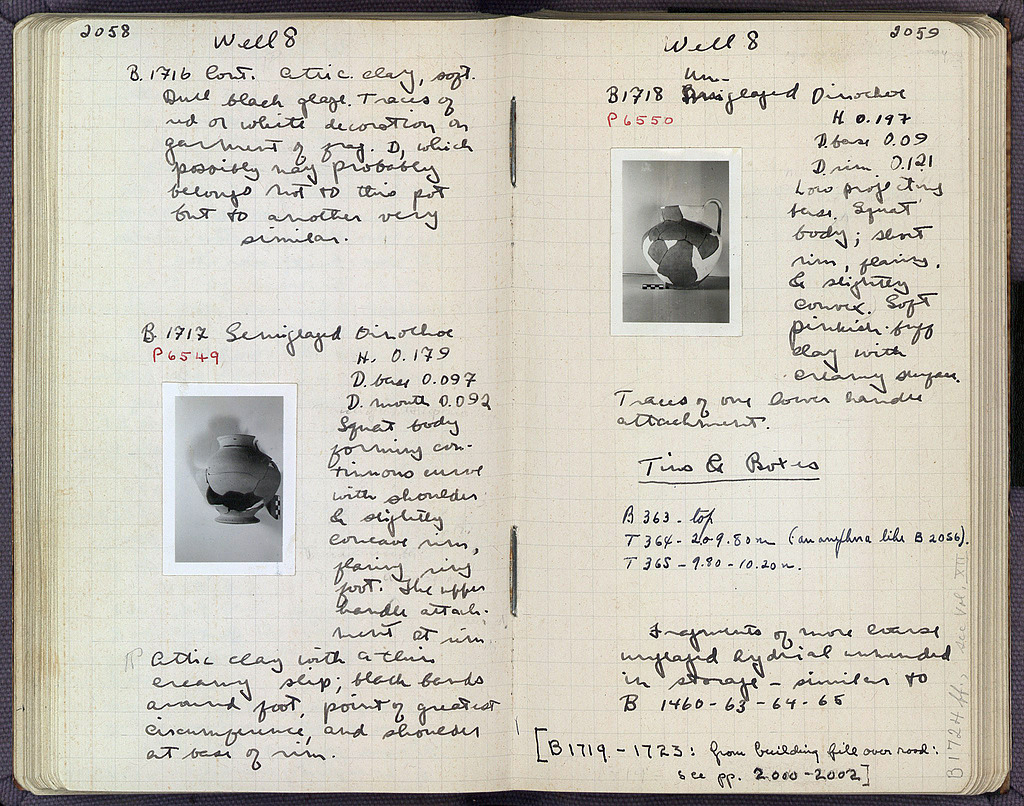 2058
Well 8
B. 1716 Cont. Attic clay, soft.
Dull black glaze. Traces of
red or white decoration on
garment of frag. D, which
possibly may probably
belongs not to this pot
but to another very
similar.
B. 1717 Semiglazed Oinochoe
P 6549
H. 0.179
D. base 0.097
D. mouth 0.092
Squat body
forming con-
tinuous curve
with shoulder
& slightly
concave rim,
flaring ring
foot. The upper
handle attach-
ment at rim
Attic clay with a thin
creamy slip; black bands
around foot, point of greatest
circumference, and shoulder
at base of rim.
2059
Well 8
Un-
B1718 glazed Oinochoe
P6550
H 0.197
D. base 0.09
D. rim. 0.121
Low projecting
base. Squat
body; short
rim, flaring,
& slightly
convex. Soft
pinkish-buff
clay with
creamy surface.
Traces of one lower handle
attachment.
Tins & Boxes
B 363 - top
T 364 - 20 9.80 m (an amphora like B 2056).
T 365 - 9.80 - 10.20 m.
Fragments of more coarse
unglazed hydriai unmended
in storage - similar to
B 1460-63-64-65
[B1719 - 1723: from building fill over road:
see pp. 2000-2002]
B1724 ff., see Vol. XII